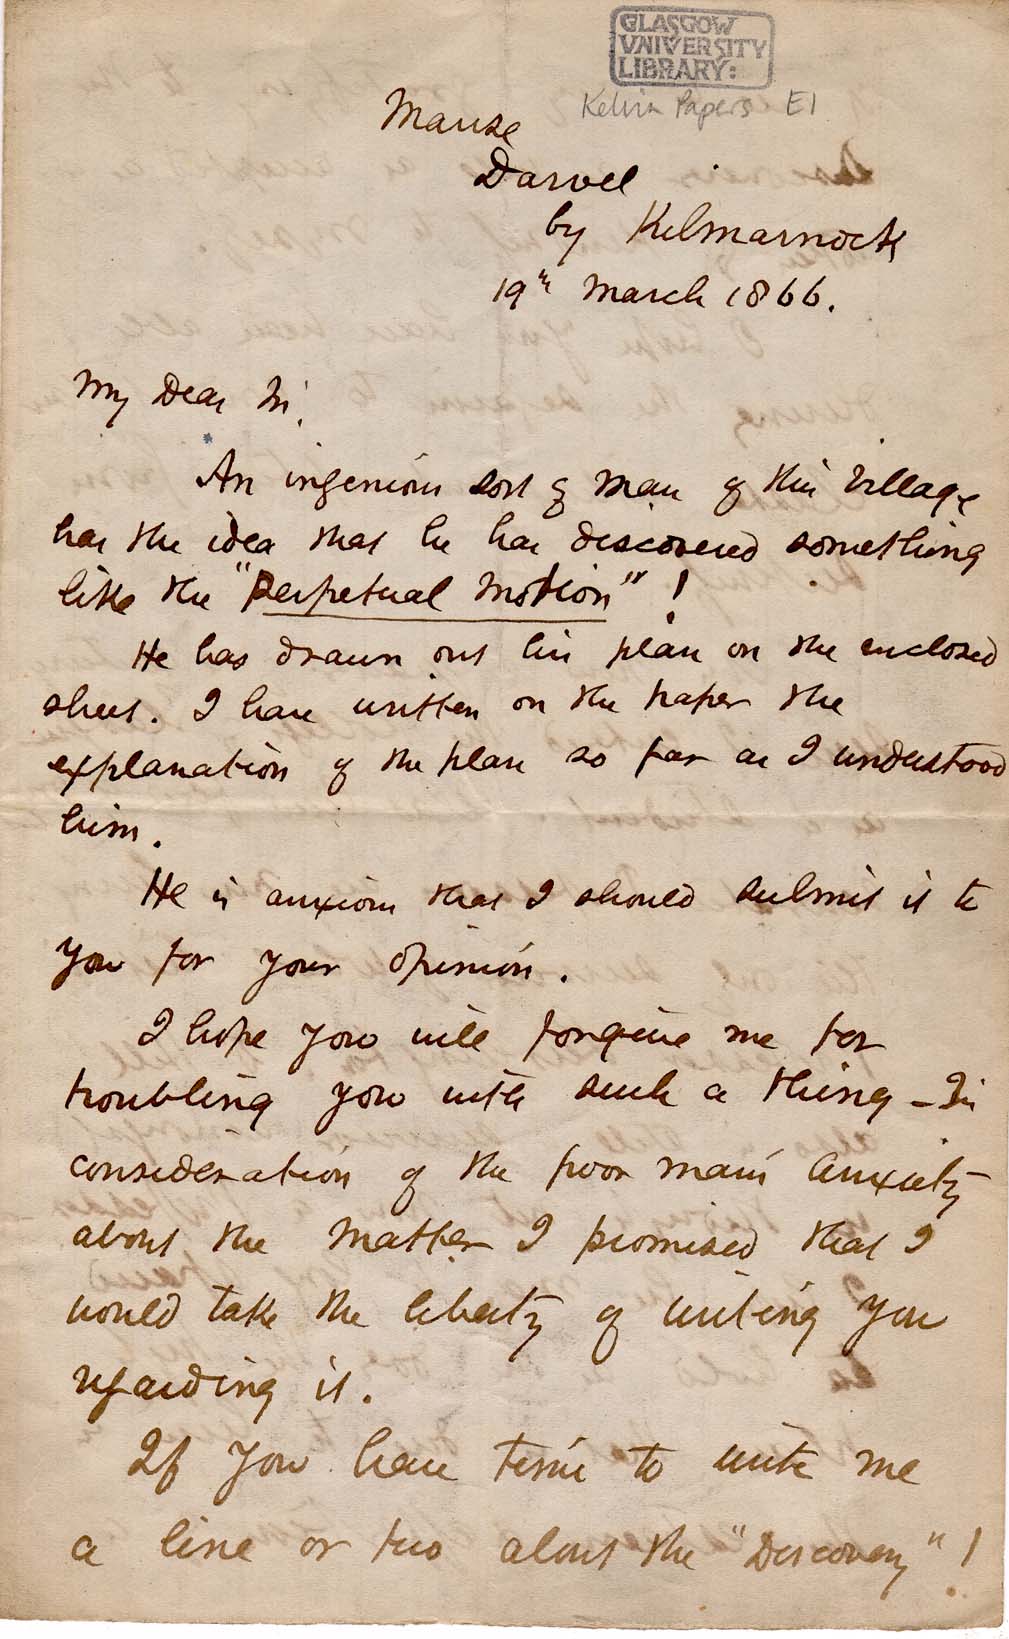 GLASGOW
UNIVERSITY
LIBRARY:
Kelvin Papers E1
Manse
Darvel
by Kilmarnock
19th March 1866.
My Dear Sir,
An ingenious sort of man of this village
has the idea that he has discovered something
like the "Perpetual Motion"!
He has drawn out his plan on the enclosed
sheet. I have written on the paper the
explanation of the plan so far as I understood
him.
He is anxious that I should submit it to
you for your opinion.
I hope you will forgive me for
troubling you with such a thing - In
consideration of the poor man's anxiety
about the matter I promised that I
would take the liberty of writing you
regarding it.
If you have time to write me
a line or two about the "Discovery"!